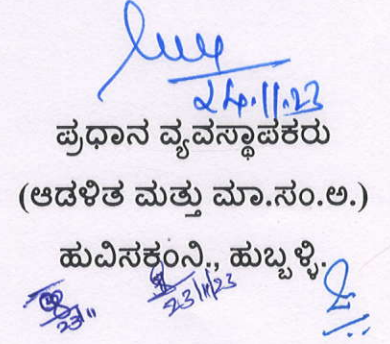 24.11.23
ಪ್ರಧಾನ ವ್ಯವಸ್ಥಾಪಕರು
(ಆಡಳಿತ ಮತ್ತು ಮಾ.ಸಂ.ಅ.)
ಹುವಿಸಕಂನಿ., ಹುಬ್ಬಳ್ಳಿ.
23/11 23/11/23